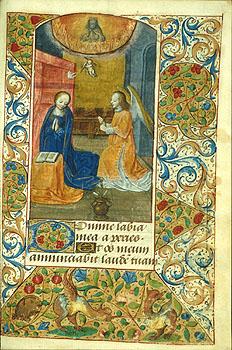 Domine labia
mea aperies.
Et os meum
annunciabit laudē tuam.